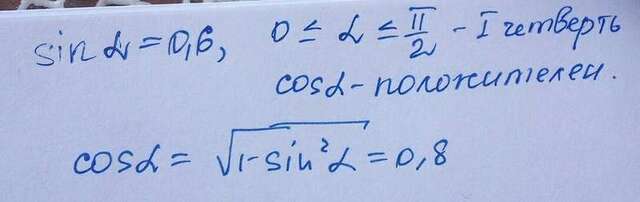 sin α = 0,6, 0 ≤ α ≤ π/2 - I четверть
cosα - положителен.
cosα = √(1-sin²α) = 0,8